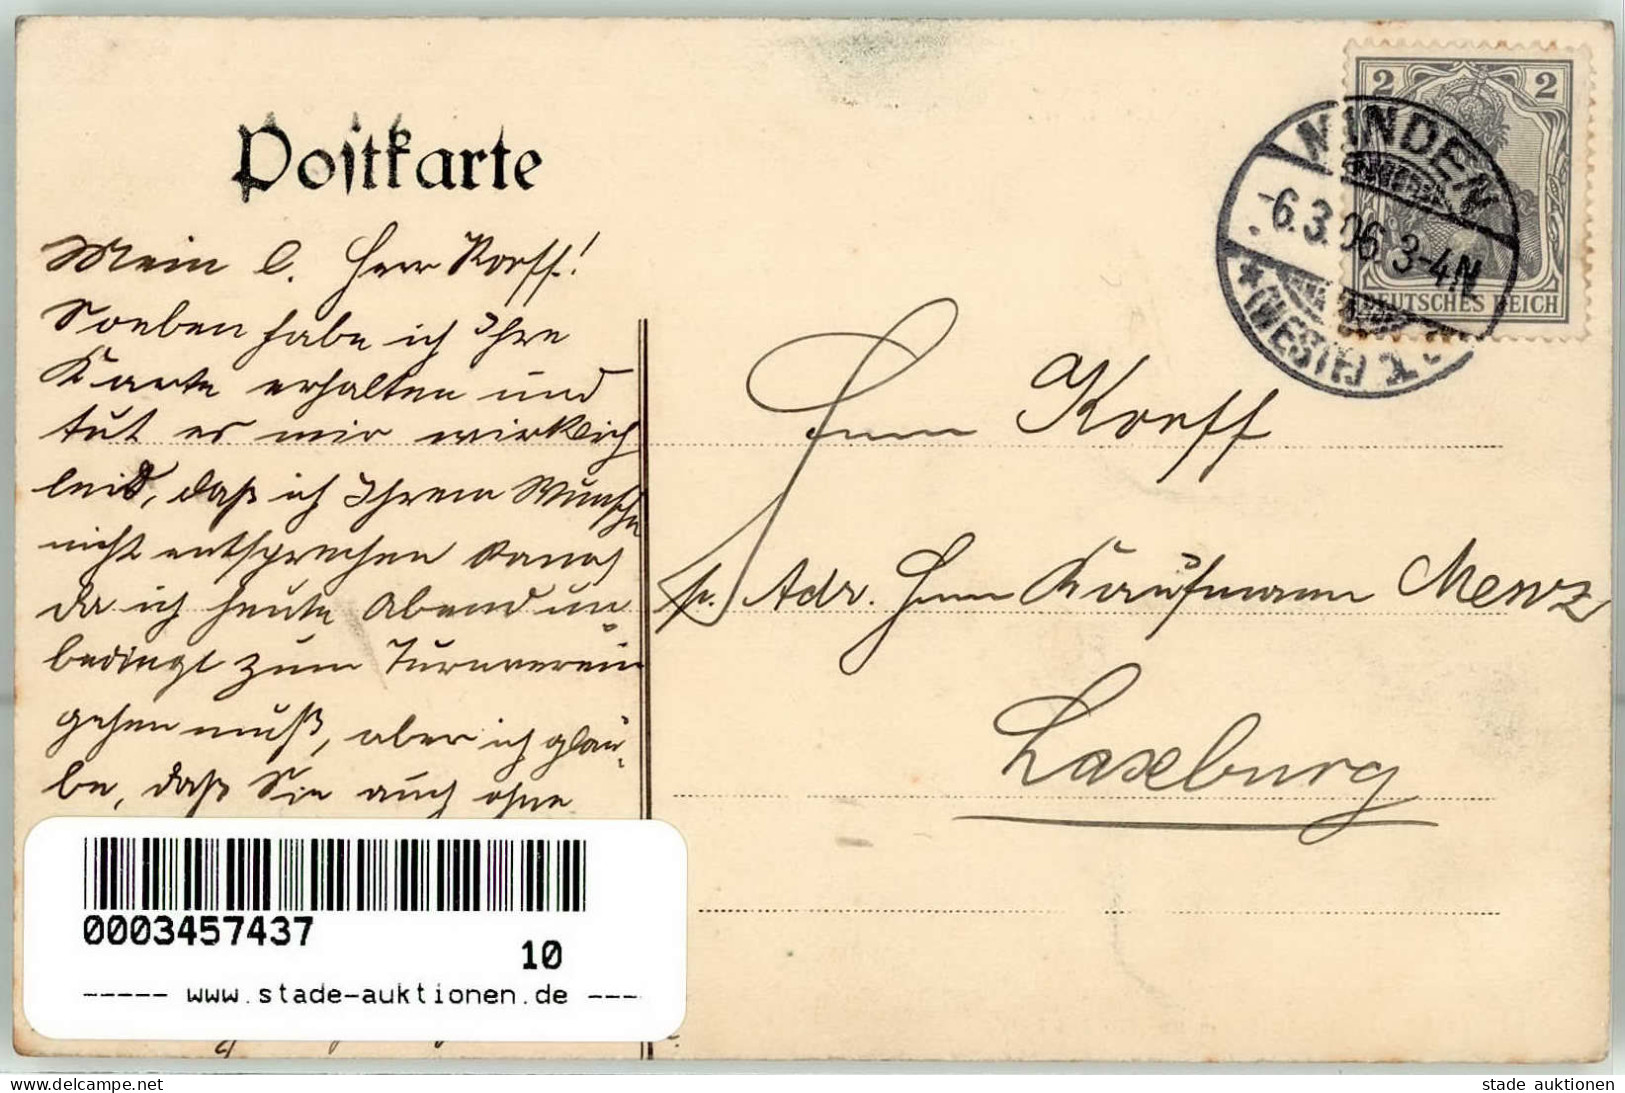 Postkarte
Mein l. Herr Korff!
Soeben habe ich Ihre
Karte erhalten und
tut es mir wirklich
leid, daß ich Ihrem Wunsche
nicht entsprechen kann,
da ich heute Abend un-
bedingt zum Turnverein
gehen muß, aber ich glau-
be, daß Sie auch ohne
2 2
DEUTSCHES REICH
MINDEN
-6.3.06. 3-4N
* (WESTF.) 1
Herrn Korff
p. Adr. Herrn Kaufmann
Laxeburg
0003457437
10
----- www.stade-auktionen.de ---
www.delcampe.net
stade auktionen